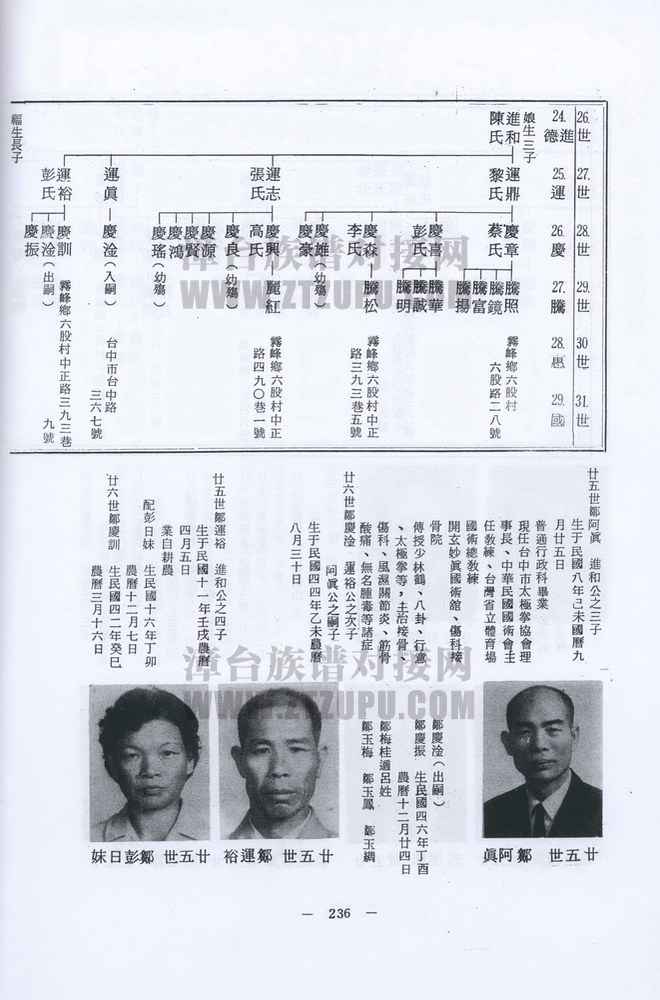 26.世
24.進德
娘生三子
進和
陳氏
福生長子
27.世
25.運
運鼎
黎氏
運志
張氏
運眞
運裕
彭氏
28.世
26.慶
慶章
蔡氏
慶喜
彭氏
慶森
李氏
慶雄(幼殤)
慶豪
慶興
高氏
慶良(幼殤)
慶源
慶賢
慶鴻
慶瑤(幼殤)
慶淦(入嗣)
慶訓
慶淦(出嗣)
慶振
29.世
27.騰
騰照
騰鏡
騰富
騰揚
騰華
騰誠
騰明
騰松
麗紅
30世
28.惠
31.世
29.國
霧峰鄉六股村
六股路二八號
霧峰鄉六股村中正
路三九三巷五號
霧峰鄉六股村中正
路四九〇巷一號
台中市台中路
三六七號
霧峰鄉六股村中正路三九三巷
九號
廿五世鄒阿眞 進和公之三子
生于民國八年己未國曆九
月廿五日
普通行政科畢業
現任台中市太極拳協會理
事長、中華民國國術會主
任教練、台灣省立體育場
國術總教練
開玄妙眞國術舘、傷科接
骨院
傳授少林鶴、八卦、行意
、太極拳等,主治接骨、
傷科、風濕關節炎、筋骨
酸痛、無名腫毒等諸症
廿六世鄒慶淦 運裕公之次子
阿眞公之嗣子
生于民國四四年乙未農曆
八月三十日
廿五世鄒運裕 進和公之四子
生于民國十一年壬戌農曆
四月五日
業自耕農
配彭日妹 生民國十六年丁卯
農曆十二月七日
廿六世鄒慶訓 生民國四二年癸巳
農曆三月十六日
鄒慶淦(出嗣)
鄒慶振 生民國四六年丁酉
農曆十二月廿四日
鄒梅桂適呂姓
鄒玉梅 鄒玉鳳 鄒玉綢
廿五世 鄒阿眞
廿五世 鄒運裕
廿五世 鄒彭日妹
漳台族谱对接网
WWW.ZTZUPU.COM
漳台族谱对接网
WWW.ZTZUPU.COM
— 236 —